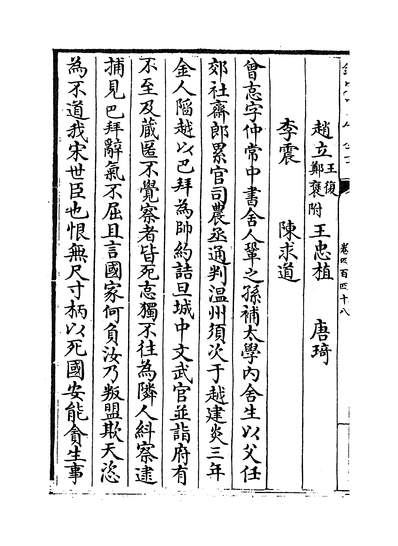 卷四百四十八
趙立王復鄭褒附王忠植 唐琦
李震 陳求道
曾忞字仲常中書舍人鞏之孫補太學內舍生以父任
郊社齋郎累官司農丞通判温州須次于越建炎三年
金人陷越以巴拜為帥約詰旦城中文武官並詣府有
不至及藏匿不覺察者皆死忞獨不往為隣人糾察逮
捕見巴拜辭氣不屈且言國家何負汝乃叛盟欺天恣
為不道我宋世臣也恨無尺寸柄以死國安能貪生事